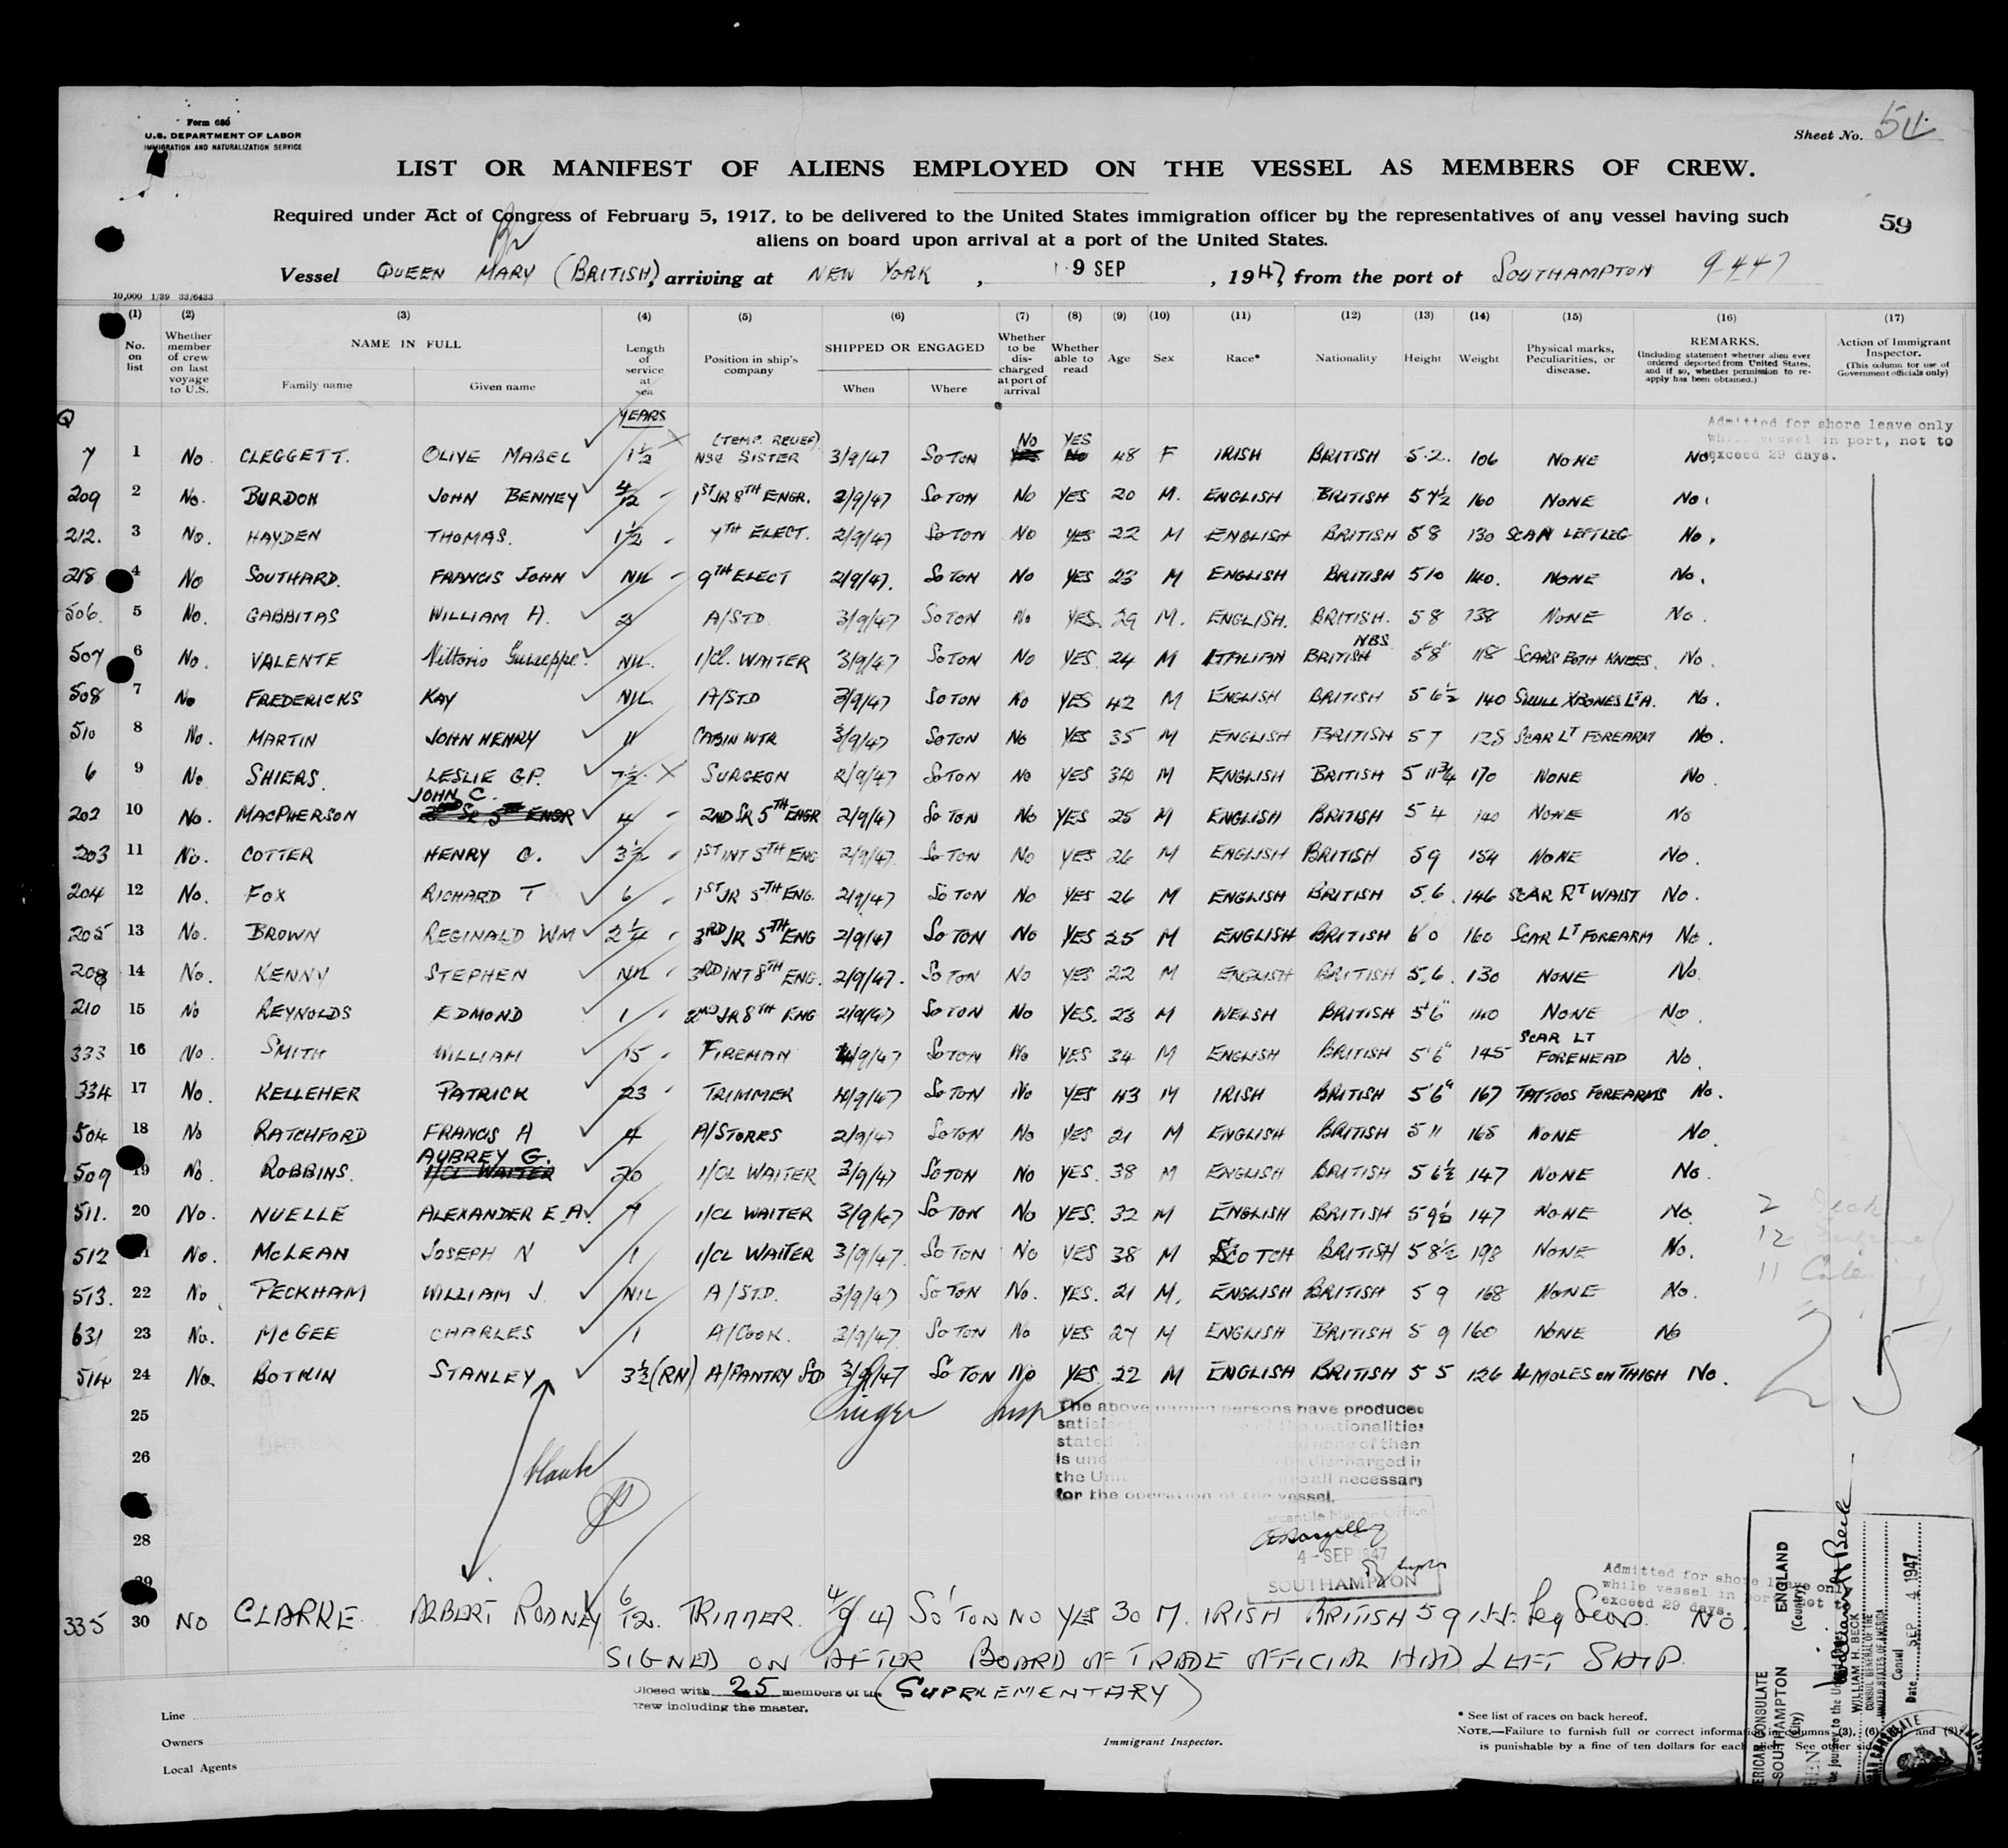 Form 680
U.S. DEPARTMENT OF LABOR
IMMIGRATION AND NATURALIZATION SERVICE
Sheet No. 54
LIST OR MANIFEST OF ALIENS EMPLOYED ON THE VESSEL AS MEMBERS OF CREW.
Required under Act of Congress of February 5, 1917, to be delivered to the United States immigration officer by the representatives of any vessel having such
aliens on board upon arrival at a port of the United States.
59
Vessel QUEEN MARY (BRITISH), arriving at NEW YORK, 9 SEP, 1947, from the port of SOUTHAMPTON 9-4-47
10,000 1/39 33/6433
(1) (2) (3) (4) (5) (6) (7) (8) (9) (10) (11) (12) (13) (14) (15) (16) (17)
No. on list
Whether member of crew on last voyage to U.S.
NAME IN FULL
Family name Given name
Length of service at sea
Position in ship's company
SHIPPED OR ENGAGED
When Where
Whether to be discharged at port of arrival
Whether able to read
Age Sex Race* Nationality Height Weight
Physical marks, Peculiarities, or disease.
REMARKS.
(Including statement whether alien ever ordered deported from United States, and if so, whether permission to reapply has been obtained.)
Action of Immigrant Inspector.
(This column for use of Government officials only)
Q YEARS
Admitted for shore leave only
while vessel in port, not to
exceed 29 days.
7 1 No CLEGGETT. OLIVE MABEL 1½ (TEMP. RELIEF) SISTER 3/9/47 SoTON No YES 48 F IRISH BRITISH 5.2. 106 NONE No.
209 2 No. BURDON JOHN BENNEY 4/12 1ST JR 8TH ENGR. 2/9/47 SoTON No YES 20 M. ENGLISH BRITISH 5 7½ 160 NONE No.
212. 3 No. HAYDEN THOMAS. 1½ 7TH ELECT. 2/9/47 SoTON No YES 22 M ENGLISH BRITISH 5 8 130 SCAR LEFT LEG No.
218 4 No SOUTHARD. FRANCIS JOHN NIL 9TH ELECT 2/9/47. SoTON No YES 23 M ENGLISH BRITISH 5 10 140. NONE No.
506. 5 No. GABBITAS WILLIAM A. 3 A/STD 3/9/47 SoTON No YES. 29 M. ENGLISH. BRITISH. 5 8 138 NONE No.
507 6 No. VALENTE Vittorio Guiseppe. NIL. 1/Cl. WAITER 3/9/47 SoTON No YES 24 M ITALIAN BRITISH NBS 5'8" 118 SCARS BOTH KNEES. No.
508 7 No FREDERICKS KAY NIL. A/STD 3/9/47 SoTON No YES 42 M ENGLISH BRITISH 5 6½ 140 SKULL XBONES LT A. No.
510 8 No. MARTIN JOHN HENRY 11 CABIN WTR 3/9/47 SoTON No YES 35 M ENGLISH BRITISH 5 7 128 SCAR LT FOREARM No.
6 9 No SHIERS. LESLIE G.P. 7½ SURGEON 2/9/47 SoTON No YES 34 M ENGLISH BRITISH 5 11¾ 170 NONE No.
202 10 No. MACPHERSON JOHN C. 4 2ND SR 5TH ENGR 2/9/47 SoTON No YES 25 M ENGLISH BRITISH 5 4 140 NONE No
203 11 No. COTTER HENRY C. 3½ 1ST INT 5TH ENG 2/9/47. SoTON No YES 26 M ENGLISH BRITISH 5 9 154 NONE No.
204 12 No. FOX RICHARD T 6 1ST JR 5TH ENG. 2/9/47 SoTON No YES 26 M ENGLISH BRITISH 5.6. 146 SCAR RT WAIST No.
205 13 No. BROWN REGINALD WM 2¼ 3RD JR 5TH ENG 2/9/47 SoTON No YES 25 M ENGLISH BRITISH 6 0 160 SCAR LT FOREARM No.
208 14 No. KENNY STEPHEN NIL 3RD INT 8TH ENG. 2/9/47. SoTON No YES 22 M ENGLISH BRITISH 5.6. 130 NONE No.
210 15 No REYNOLDS EDMOND 1 2ND JR 8TH ENG 2/9/47 SoTON No YES. 23 M WELSH BRITISH 5'6" 140 NONE No.
333 16 No. SMITH WILLIAM 15 FIREMAN 4/9/47 SoTON No YES 34 M ENGLISH BRITISH 5'6" 145 SCAR LT FOREHEAD No.
334 17 No. KELLEHER PATRICK 23 TRIMMER 4/9/47 SoTON No YES 43 M IRISH BRITISH 5'6" 167 TATTOOS FOREARMS No.
504 18 No RATCHFORD FRANCIS A 4 A/STORES 2/9/47 SoTON No YES 21 M ENGLISH BRITISH 5 11 165 NONE No.
509 19 No. ROBBINS. AUBREY G. 20 1/CL WAITER 3/9/47 SoTON No YES. 38 M ENGLISH BRITISH 5 6½ 147 NONE No.
511. 20 No. NUELLE ALEXANDER E.A. 1/CL WAITER 3/9/47 SoTON No YES. 32 M ENGLISH BRITISH 5 9½ 147 NONE No.
512 21 No. MCLEAN JOSEPH N 1 1/CL WAITER 3/9/47. SoTON No YES 38 M SCOTCH BRITISH 5 8½ 198 NONE No.
513. 22 No PECKHAM WILLIAM J. NIL A/STD. 3/9/47 SoTON No. YES. 21 M. ENGLISH BRITISH 5 9 168 NONE No.
631 23 No. MCGEE CHARLES 1 A/COOK. 2/9/47. SoTON No YES 27 M ENGLISH BRITISH 5 9 160 NONE No
514 24 No. BOTKIN STANLEY 3½ (RN) A/PANTRY STD 3/9/47 SoTON No YES. 22 M ENGLISH BRITISH 5 5 126 4 MOLES ON THIGH No.
2
12 Engine
11
25
25
26
28
29
blank
The above persons have produced
nationalities
stated none of them
is discharged in
the all necessary
for the operation of the vessel.
Mercantile Marine Office
4 - SEP 1947
SOUTHAMPTON
Admitted for shore leave only
while vessel in port, not to
exceed 29 days.
335 30 NO CLARKE ALBERT RODNEY 6/12. TRIMMER. 4/9/47 SO'TON NO YES 30 M. IRISH BRITISH 5 9 leg Scar. NO.
SIGNED ON AFTER BOARD OF TRADE OFFICIAL HAD LEFT SHIP
Closed with 25 members of the (SUPPLEMENTARY)
crew including the master.
Line
Owners
Local Agents
Immigrant Inspector.
* See list of races on back hereof.
NOTE.—Failure to furnish full or correct information in columns (3), (6), and (8)
is punishable by a fine of ten dollars for each alien. See other side
AMERICAN CONSULATE
SOUTHAMPTON ENGLAND
(City) (Country)
the journey to the United
WILLIAM H. BECK
CONSUL GENERAL OF THE
UNITED STATES OF AMERICA
Consul
Date SEP 4 1947